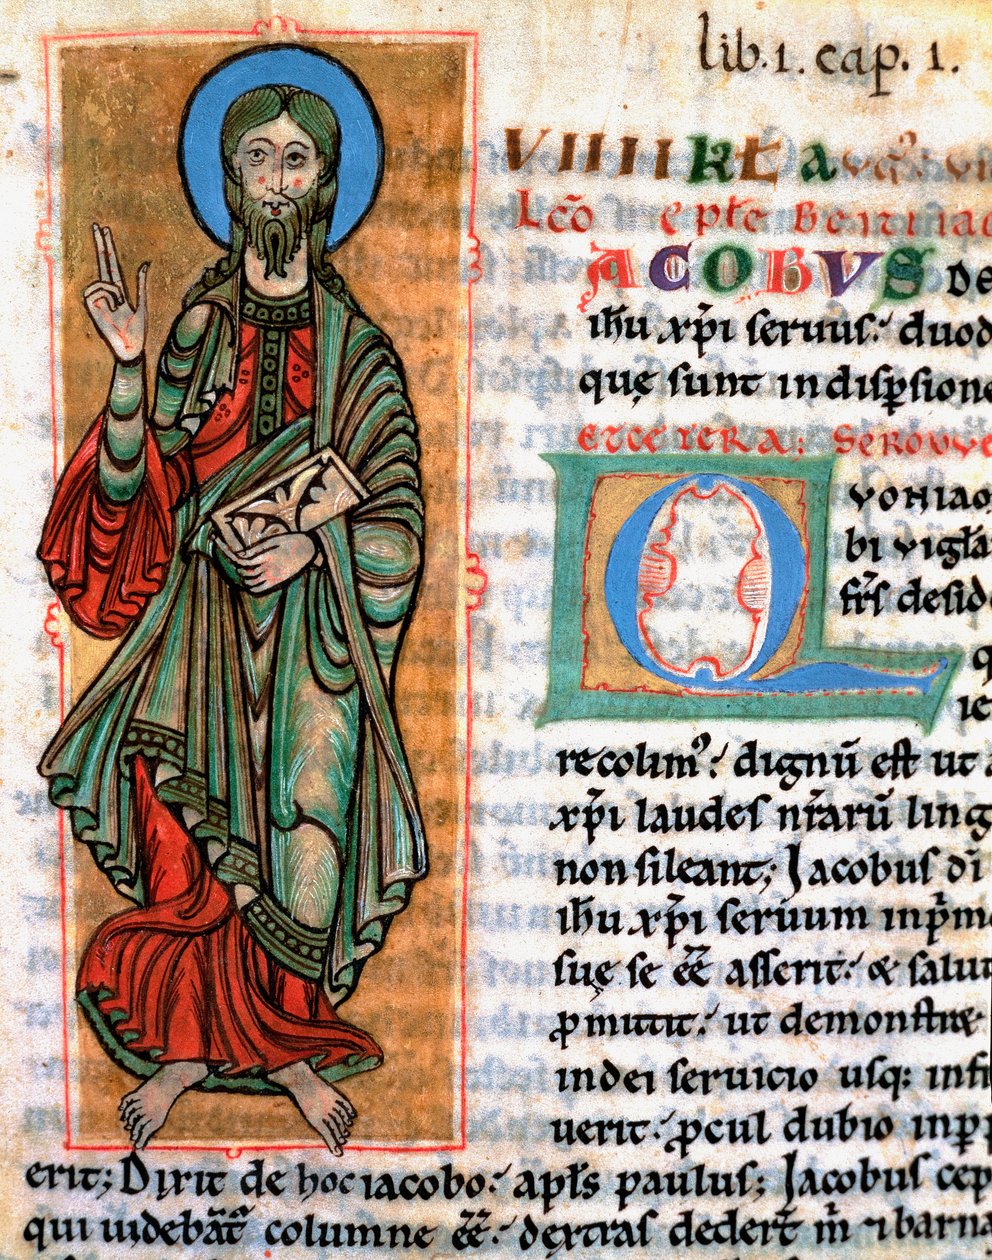 lib. 1. cap. 1.
VIIII kł̄ a
Lc̄o epłe Beati
IACOBUS DE
ih̄u xp̄i seruus: duod
quę sunt in disp̄sione
ET CETERA: SERMO
bi vigła
fr̄s desid
q
recolim᷒: dignū est ut
xp̄i laudes nr̄arū ling
non sileant; Jacobus dī
ih̄u xp̄i seruum inp̄m
suę se eē̄ asserit: & salut
ꝓmittit: ut demonstret
in dei seruicio usq: infi
uerit: ꝓcul dubio inp̄
erit; Dixit de hoc iacobo: apl̄s paulus; Jacobus cep
qui uidebāt᷒ columne eē̄: dextras dedert̄ m̄ ⁊ barna